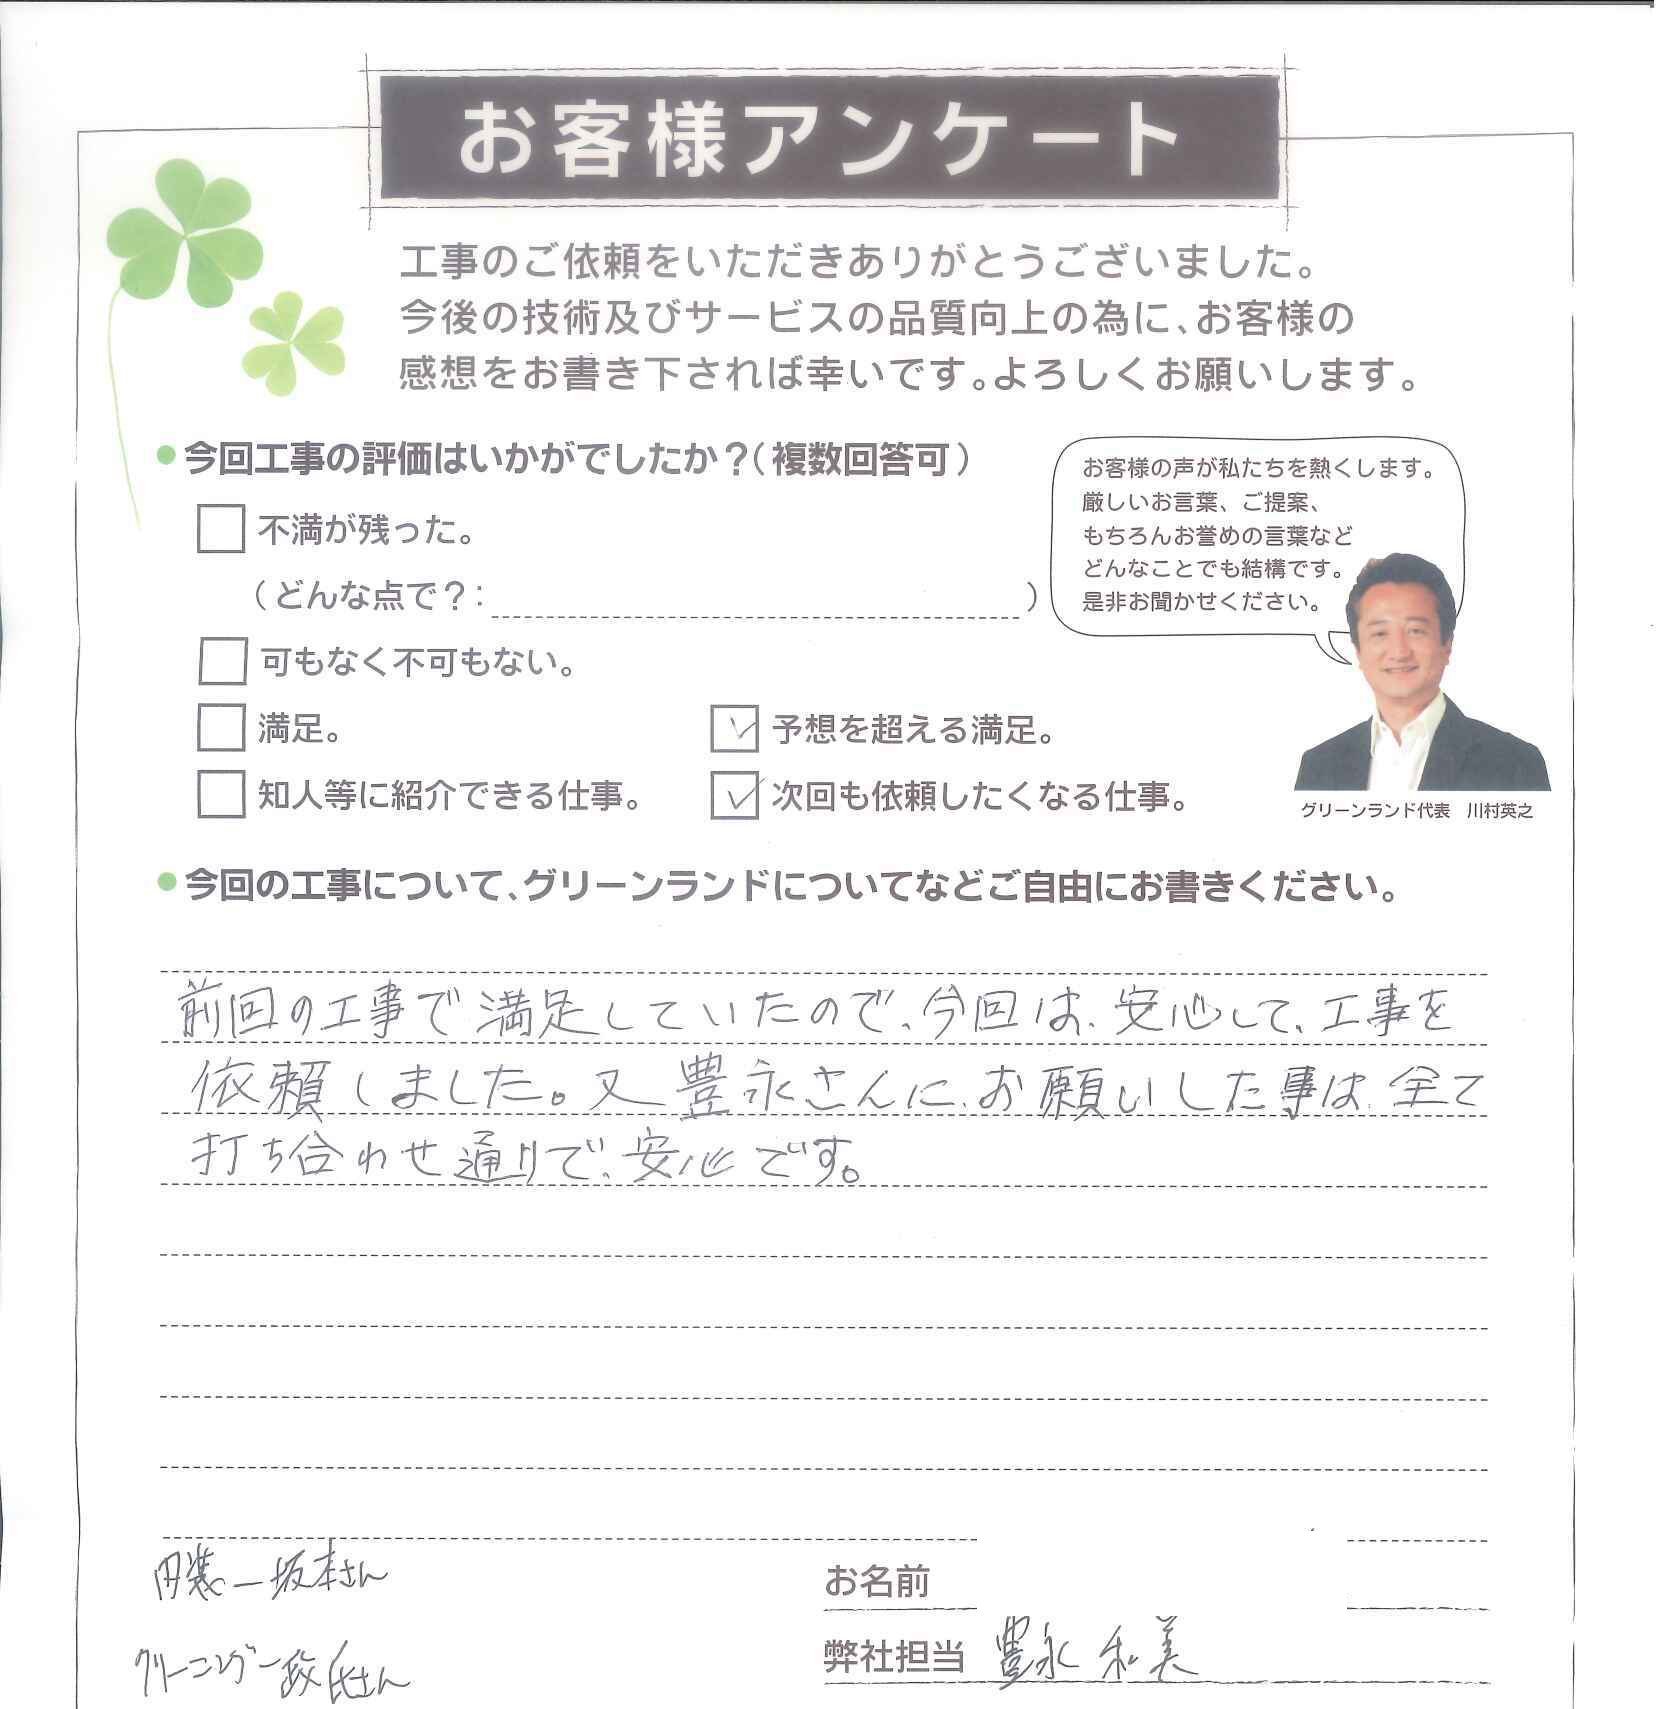 お客様アンケート
工事のご依頼をいただきありがとうございました。
今後の技術及びサービスの品質向上の為に、お客様の
感想をお書き下されば幸いです。よろしくお願いします。
今回工事の評価はいかがでしたか？（複数回答可）
不満が残った。
（どんな点で？： ）
可もなく不可もない。
満足。
予想を超える満足。
知人等に紹介できる仕事。
次回も依頼したくなる仕事。
お客様の声が私たちを熱くします。
厳しいお言葉、ご提案、
もちろんお誉めの言葉など
どんなことでも結構です。
是非お聞かせください。
グリーンランド代表　川村英之
今回の工事について、グリーンランドについてなどご自由にお書きください。
前回の工事で満足していたので、今回は、安心して、工事を
依頼しました。又豊永さんに、お願いした事は、全て
打ち合わせ通りで、安心です。
内装ー坂本さん
クリーニングー政氏さん
お名前
弊社担当 豊永 和美